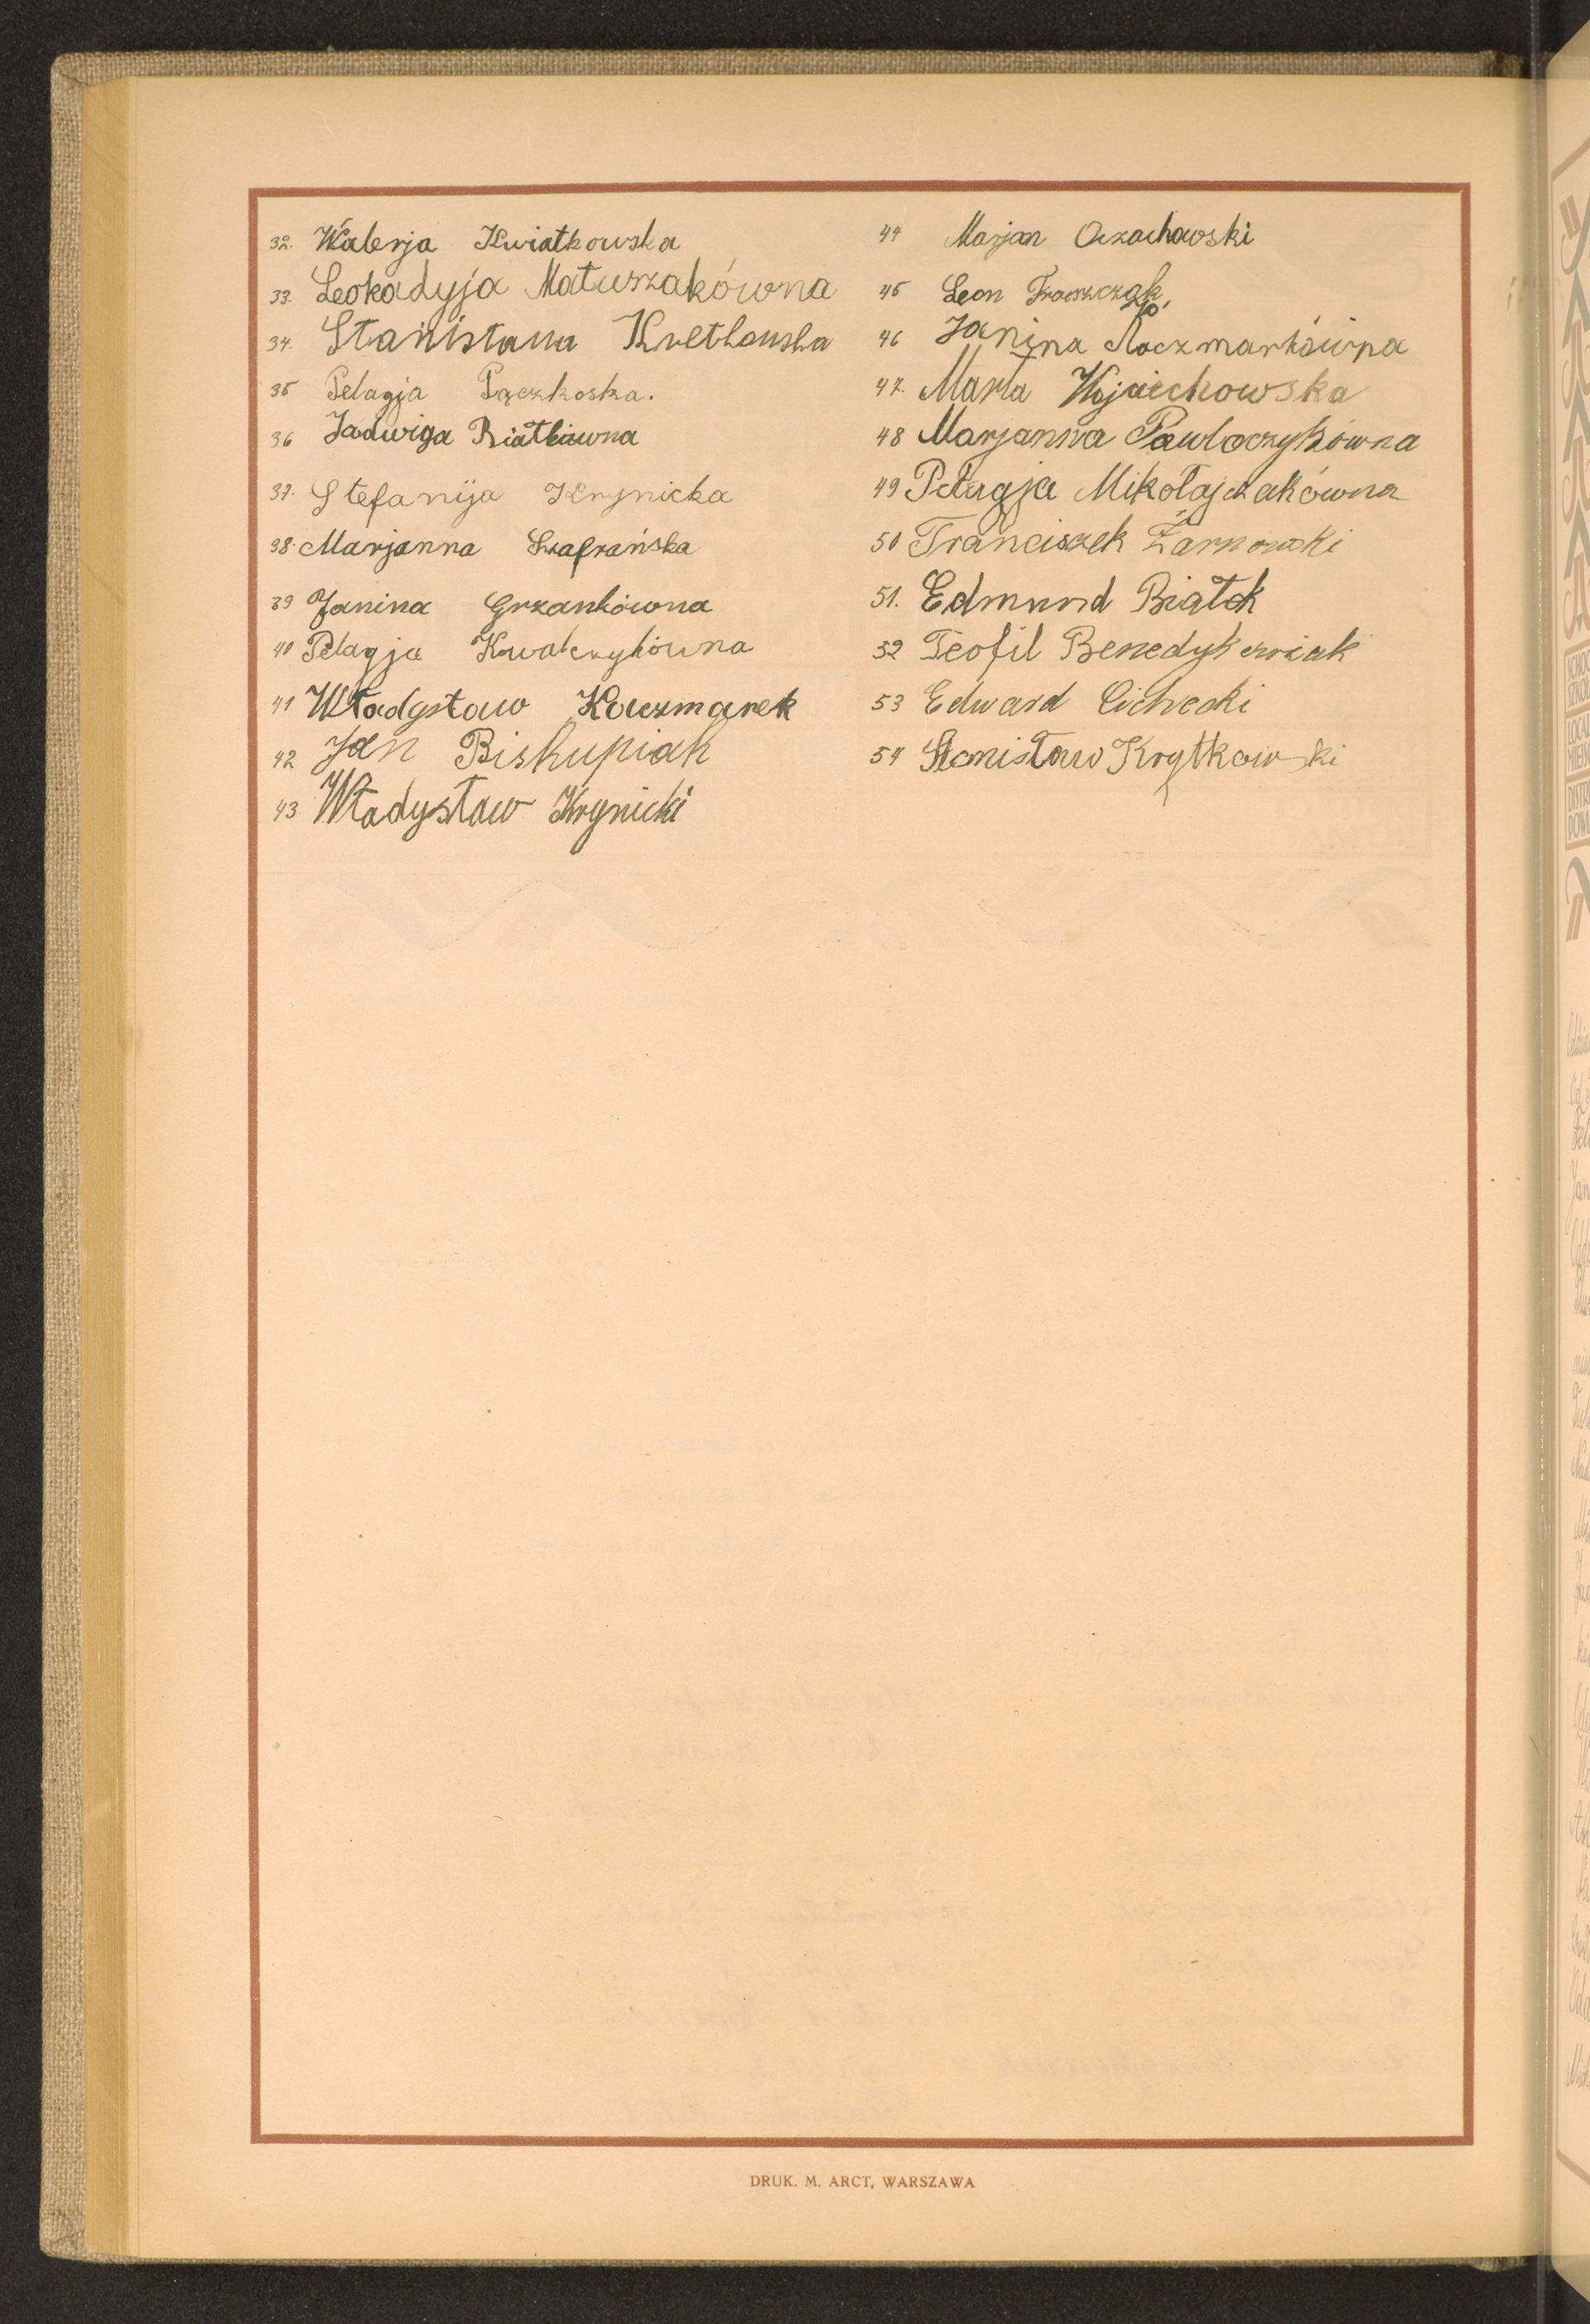 32. Walerja Kwiatkowska
33. Leokadyja Matuszakówna
34. Stanisława
35 Pelagja Pączkoska.
36 Jadwiga Białkówna
37. Stefanija Krynicka
38. Marjanna Szafrańska
39 Janina Grzankówna
40 Pelagja Kowalczykówna
41 Władysław Kaczmarek
42 Jan Biskupiak
43 Władysław Krynicki
44 Marjan Orzachowski
45 Leon Fraszczak
46 Janina Kaczmarkówna
47. Marta Wojciechowska
48 Marjanna Pawlaczykówna
49 Pelagja Mikołajczakówna
50 Franciszek Żarnowski
51. Edmund Białek
52 Teofil Benedykciniak
53 Edward Cichocki
54 Stanisław Krytkowski
DRUK. M. ARCT, WARSZAWA